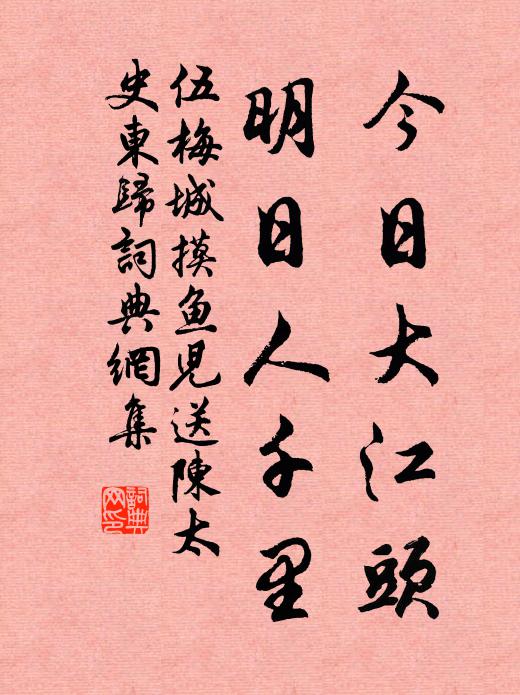 今日大江頭
明日人千里
伍梅城摸魚兒送陳太
史東歸詞典網集
詞典
网印